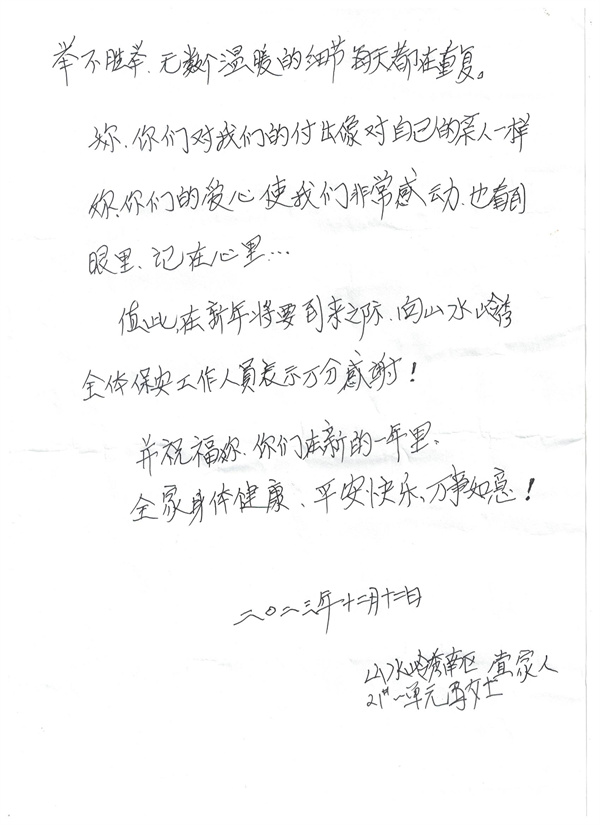 举不胜举、无数个温暖的细节每天都在重复。
你、你们对我们的付出像对自己的亲人一样
你、你们的爱心使我们非常感动、也看到
眼里、记在心里…
值此,在新年将要到来之际、向山水岭秀
全体保安工作人员表示万分感谢!
并祝福你、你们在新的一年里、
全家身体健康、平安快乐、万事如意!
二〇二三年十二月十二日
山水岭秀南区 家人
21# 一单元 女士